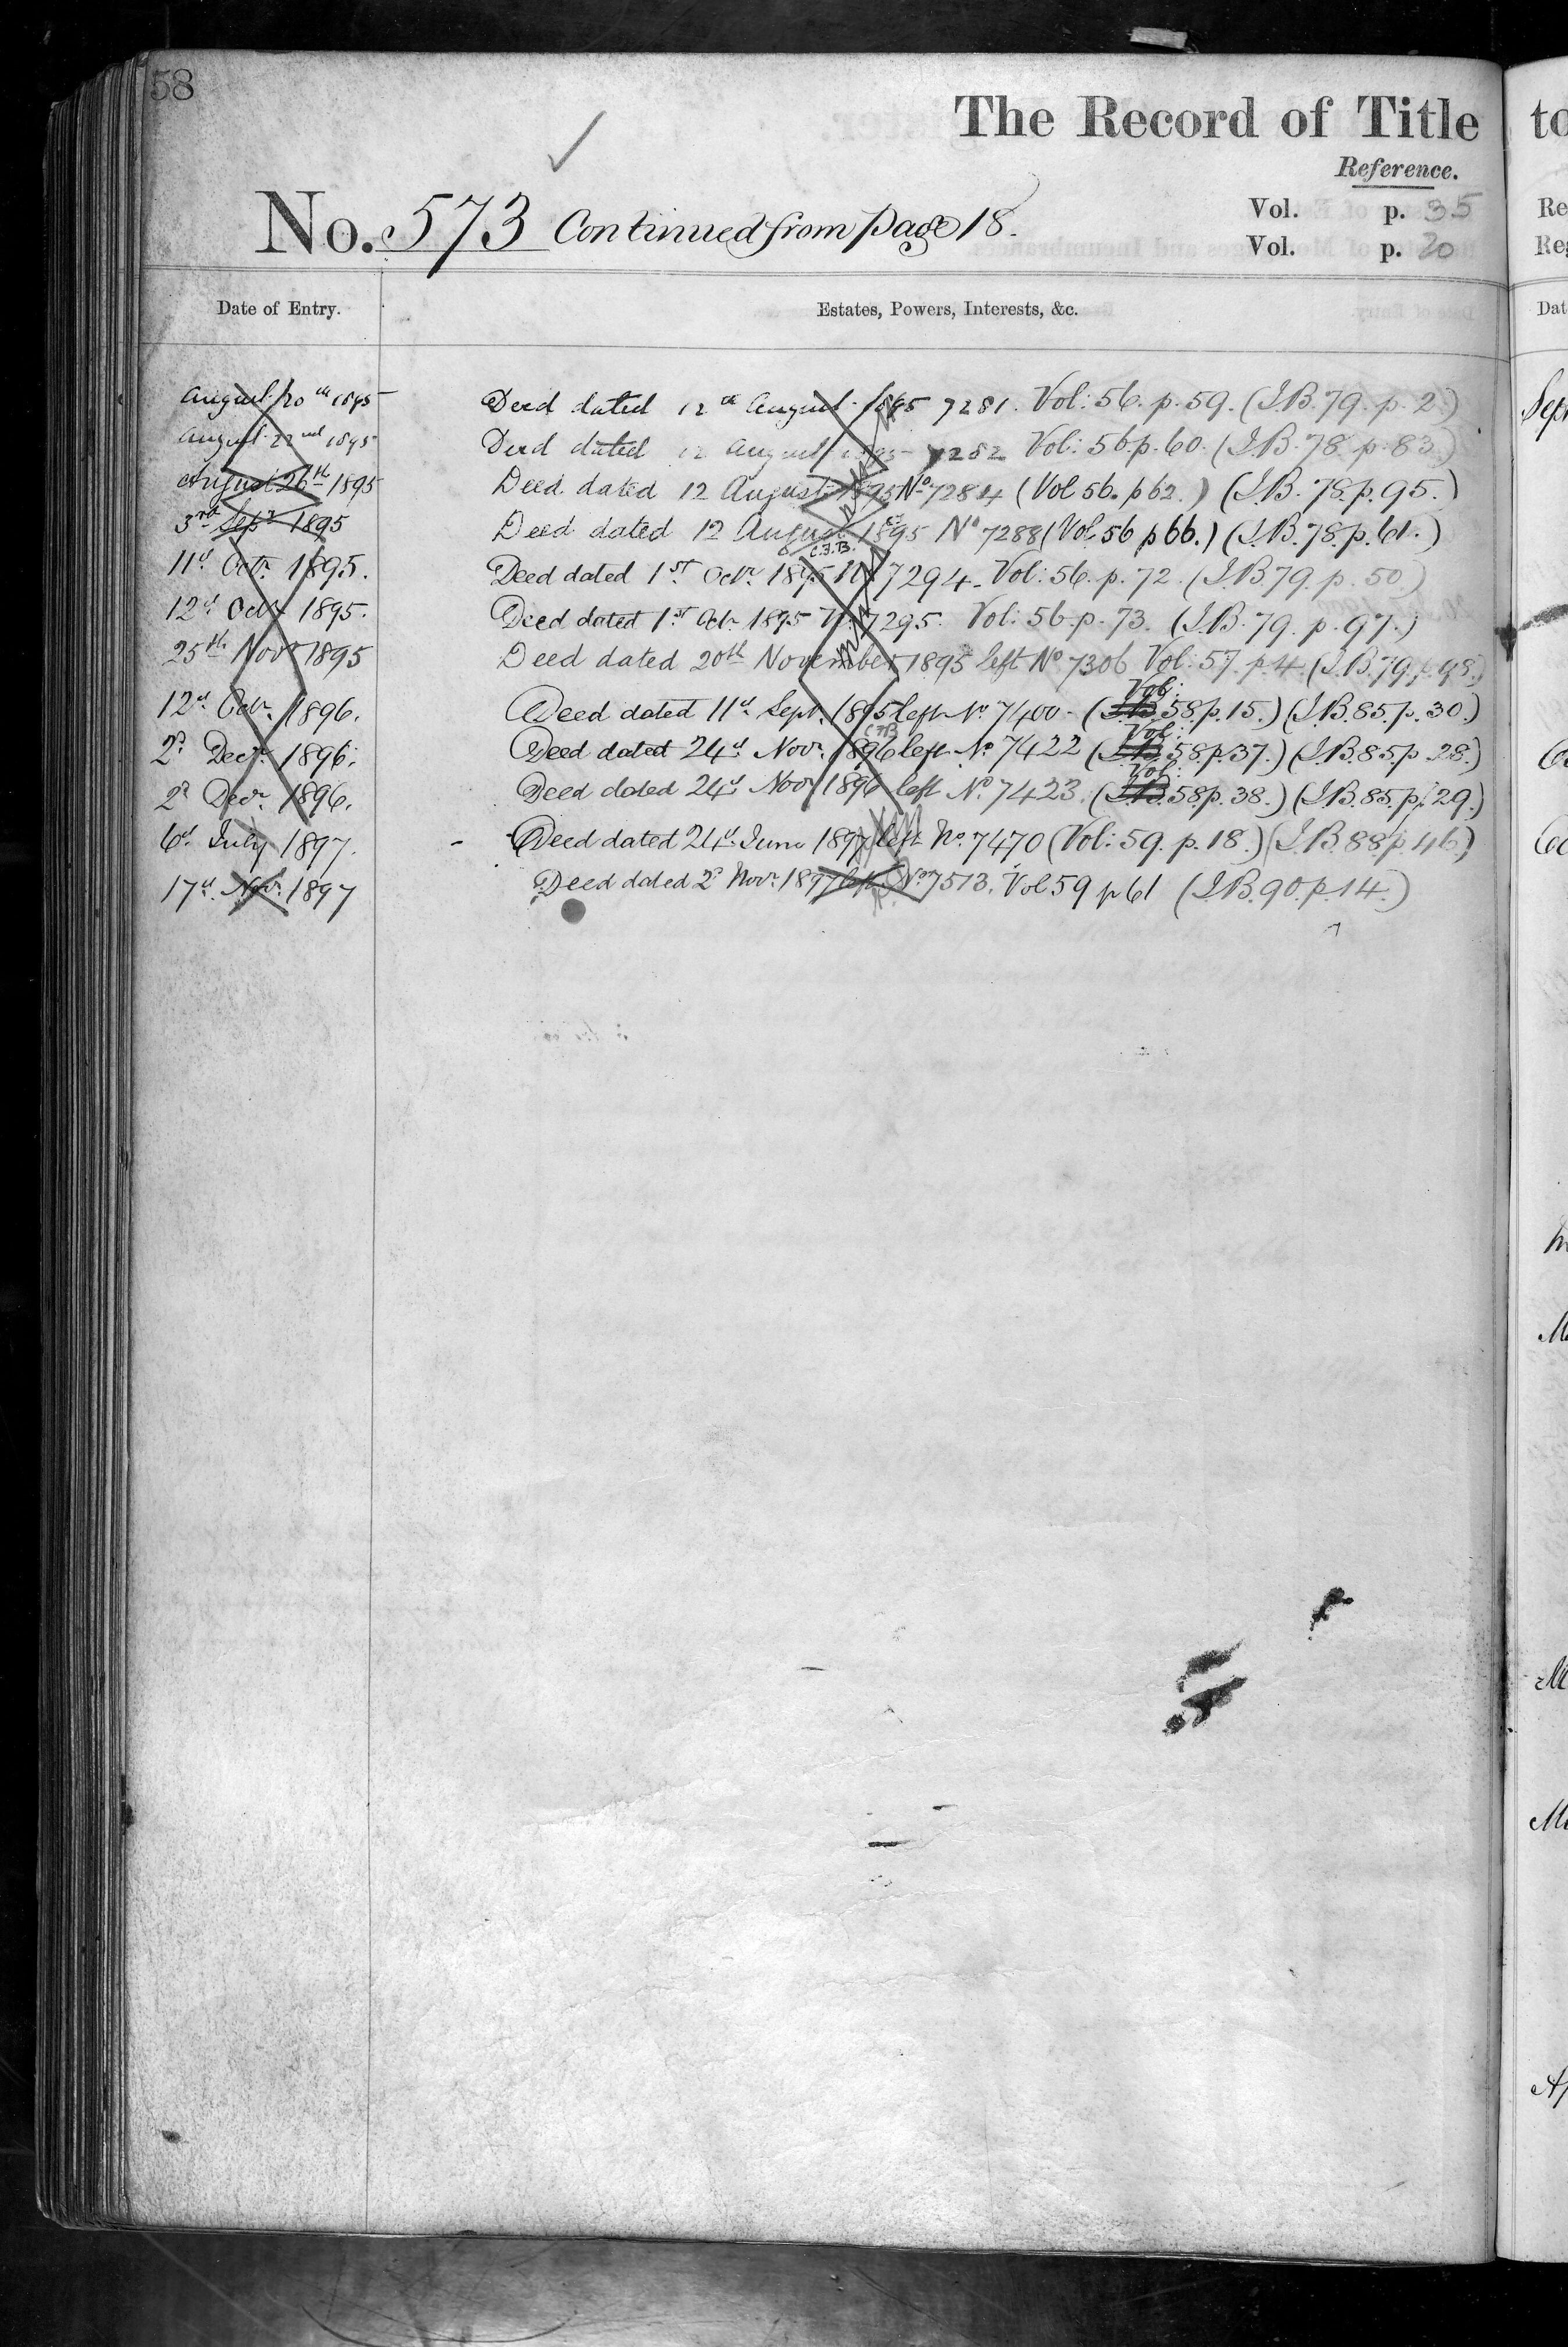 58
The Record of Title
Reference.
No. 573 Continued from page 18.
Vol. p. 35
Vol. p. 20
Date of Entry. Estates, Powers, Interests, &c.
August 20th 1895 Deed dated 12th August 1895 7281. Vol: 56. p. 59. (I.B. 79. p. 2.)
August 22nd 1895 Deed dated 12 August 1895 7282 Vol: 56. p. 60. (I.B. 78. p. 83.)
August 26th 1895 Deed dated 12 August 1895 No 7284 (Vol 56. p 62.) (I.B. 78. p. 95.)
3rd Sepr 1895 Deed dated 12 August 1895 No 7288 (Vol 56 p 66.) (I.B. 78. p. 61.)
C.J.B.
11d Octr. 1895. Deed dated 1st Octr. 1895 No 7294. Vol: 56. p. 72. (I.B. 79. p. 50)
12d Octr 1895. Deed dated 1st Octr 1895 No 7295. Vol: 56. p. 73. (I.B. 79. p. 97.)
25th Novr 1895 Deed dated 20th November 1895 left No 7306 Vol: 57. p. 4. (I.B. 79. p. 98.)
12d Octr. 1896. Deed dated 11d Sept. 1895 left No 7400 - (I.B. Vol: 58. p. 15.) (I.B. 85. p. 30.)
2d Decr. 1896. Deed dated 24d Novr. 1896 left No 7422 (I.B. Vol: 58. p. 37.) (I.B. 85. p 28.)
2d Decr. 1896. Deed dated 24d Novr 1896 left No 7423. (I.B. Vol: 58. p. 38.) (I.B. 85. p. 29.)
6d July 1897. - Deed dated 24d June 1897 left No. 7470 (Vol: 59. p. 18.) (I.B. 88. p. 46.)
17d Novr. 1897 Deed dated 2d Novr. 1897 left No 7513. Vol 59 p 61 (I.B. 90. p. 14.)